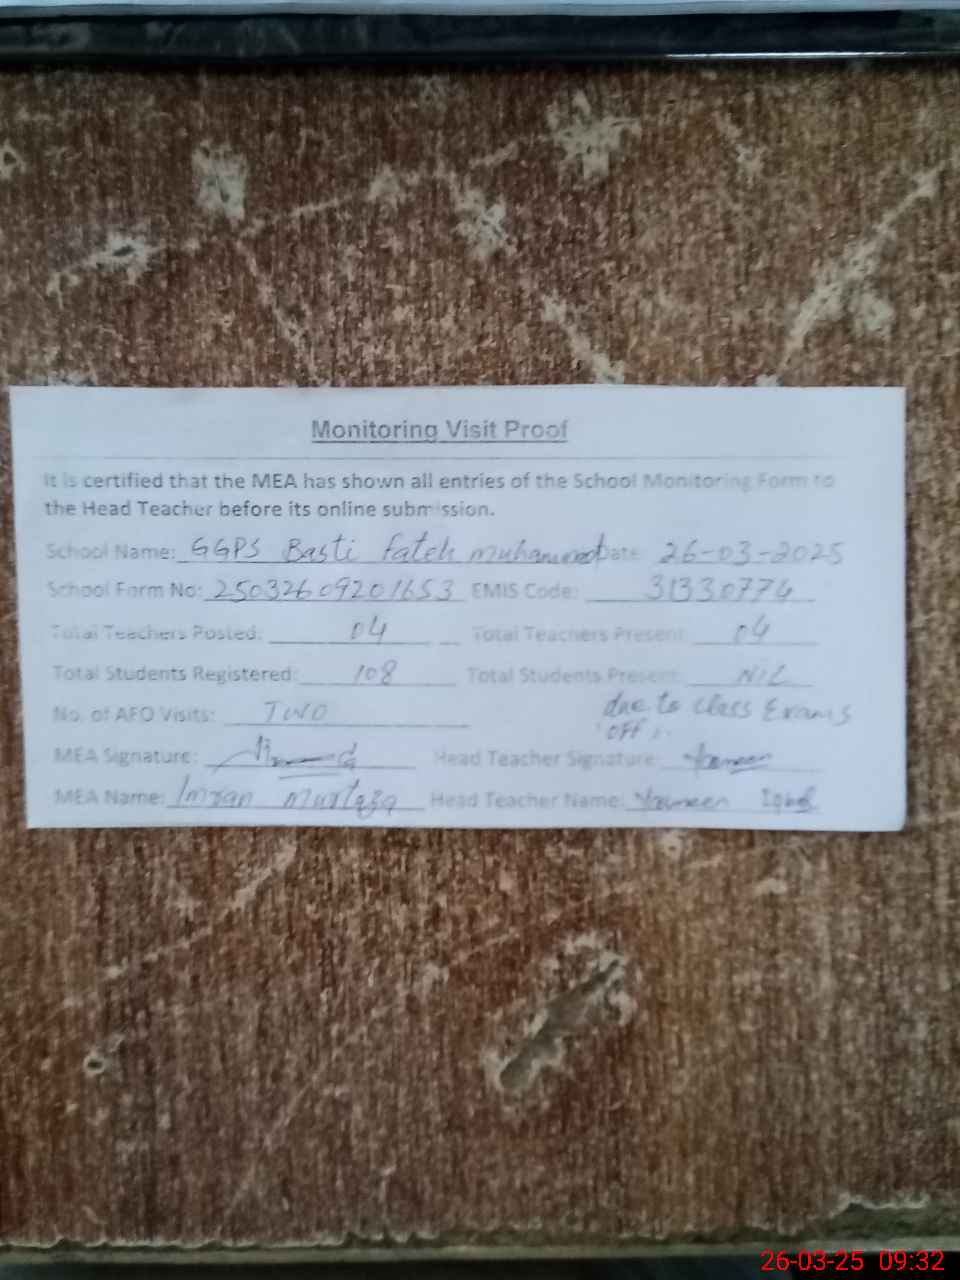 Monitoring Visit Proof
It is certified that the MEA has shown all entries of the School Monitoring Form to
the Head Teacher before its online submission.
School Name: GGPS Basti Fateh muhammad Date 26-03-2025
School Form No: 25032609201653 EMIS Code: 31330774
Total Teachers Posted: 04 Total Teachers Present 04
Total Students Registered: 108 Total Students Present NIL
due to class Exams
No. of AEO Visits: TWO
off
MEA Signature: Head Teacher Signature:
MEA Name: Imran Murtaza Head Teacher Name: Iqbal
26-03-25 09:32